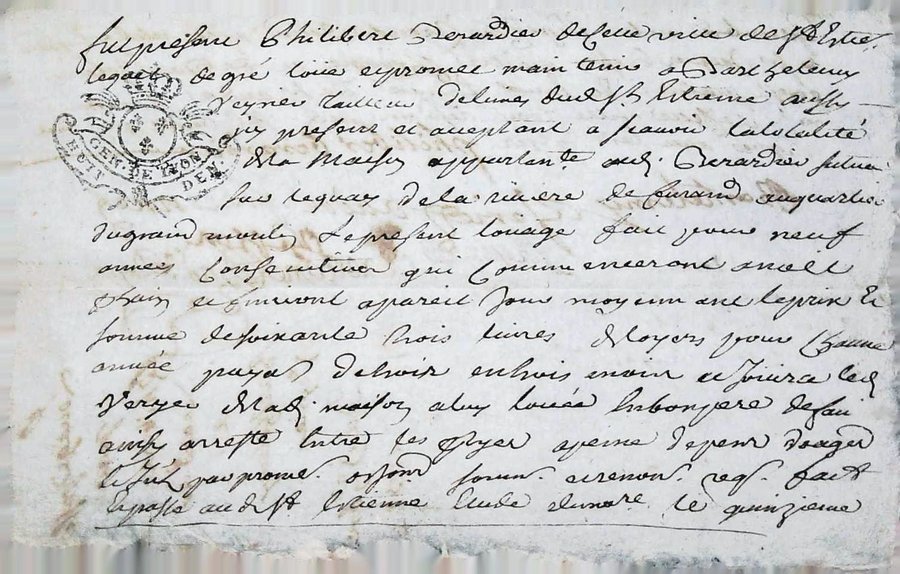 fut présent Philibert Berardier de cette ville de St Estie.
lequel de gré loüe et promet maintenir a Barthelemy
Veyrier tailleur de limes dud. St Estienne aussy
icy présent et acceptant a scavoir la totalité
GEN DE LION
de la Maison appartante. aud. Berardier scituée
sur le quay de la rivière de furand au quartier
du grand moulin Le present loüage fait pour neuf
années consecutives qui commenceront a noel
et finiront a pareil jour moyennant le prix et
somme de soixante trois livres de loyers pour chacune
année payab de trois en trois mois et jouira led.
Veyrier de lad. maison a luy loüée en bon pere de
ainsy arresté entre les a peine de
par promes. soum. renon. fait
et passé aud. St Estienne Etude du nore. le quinzieme